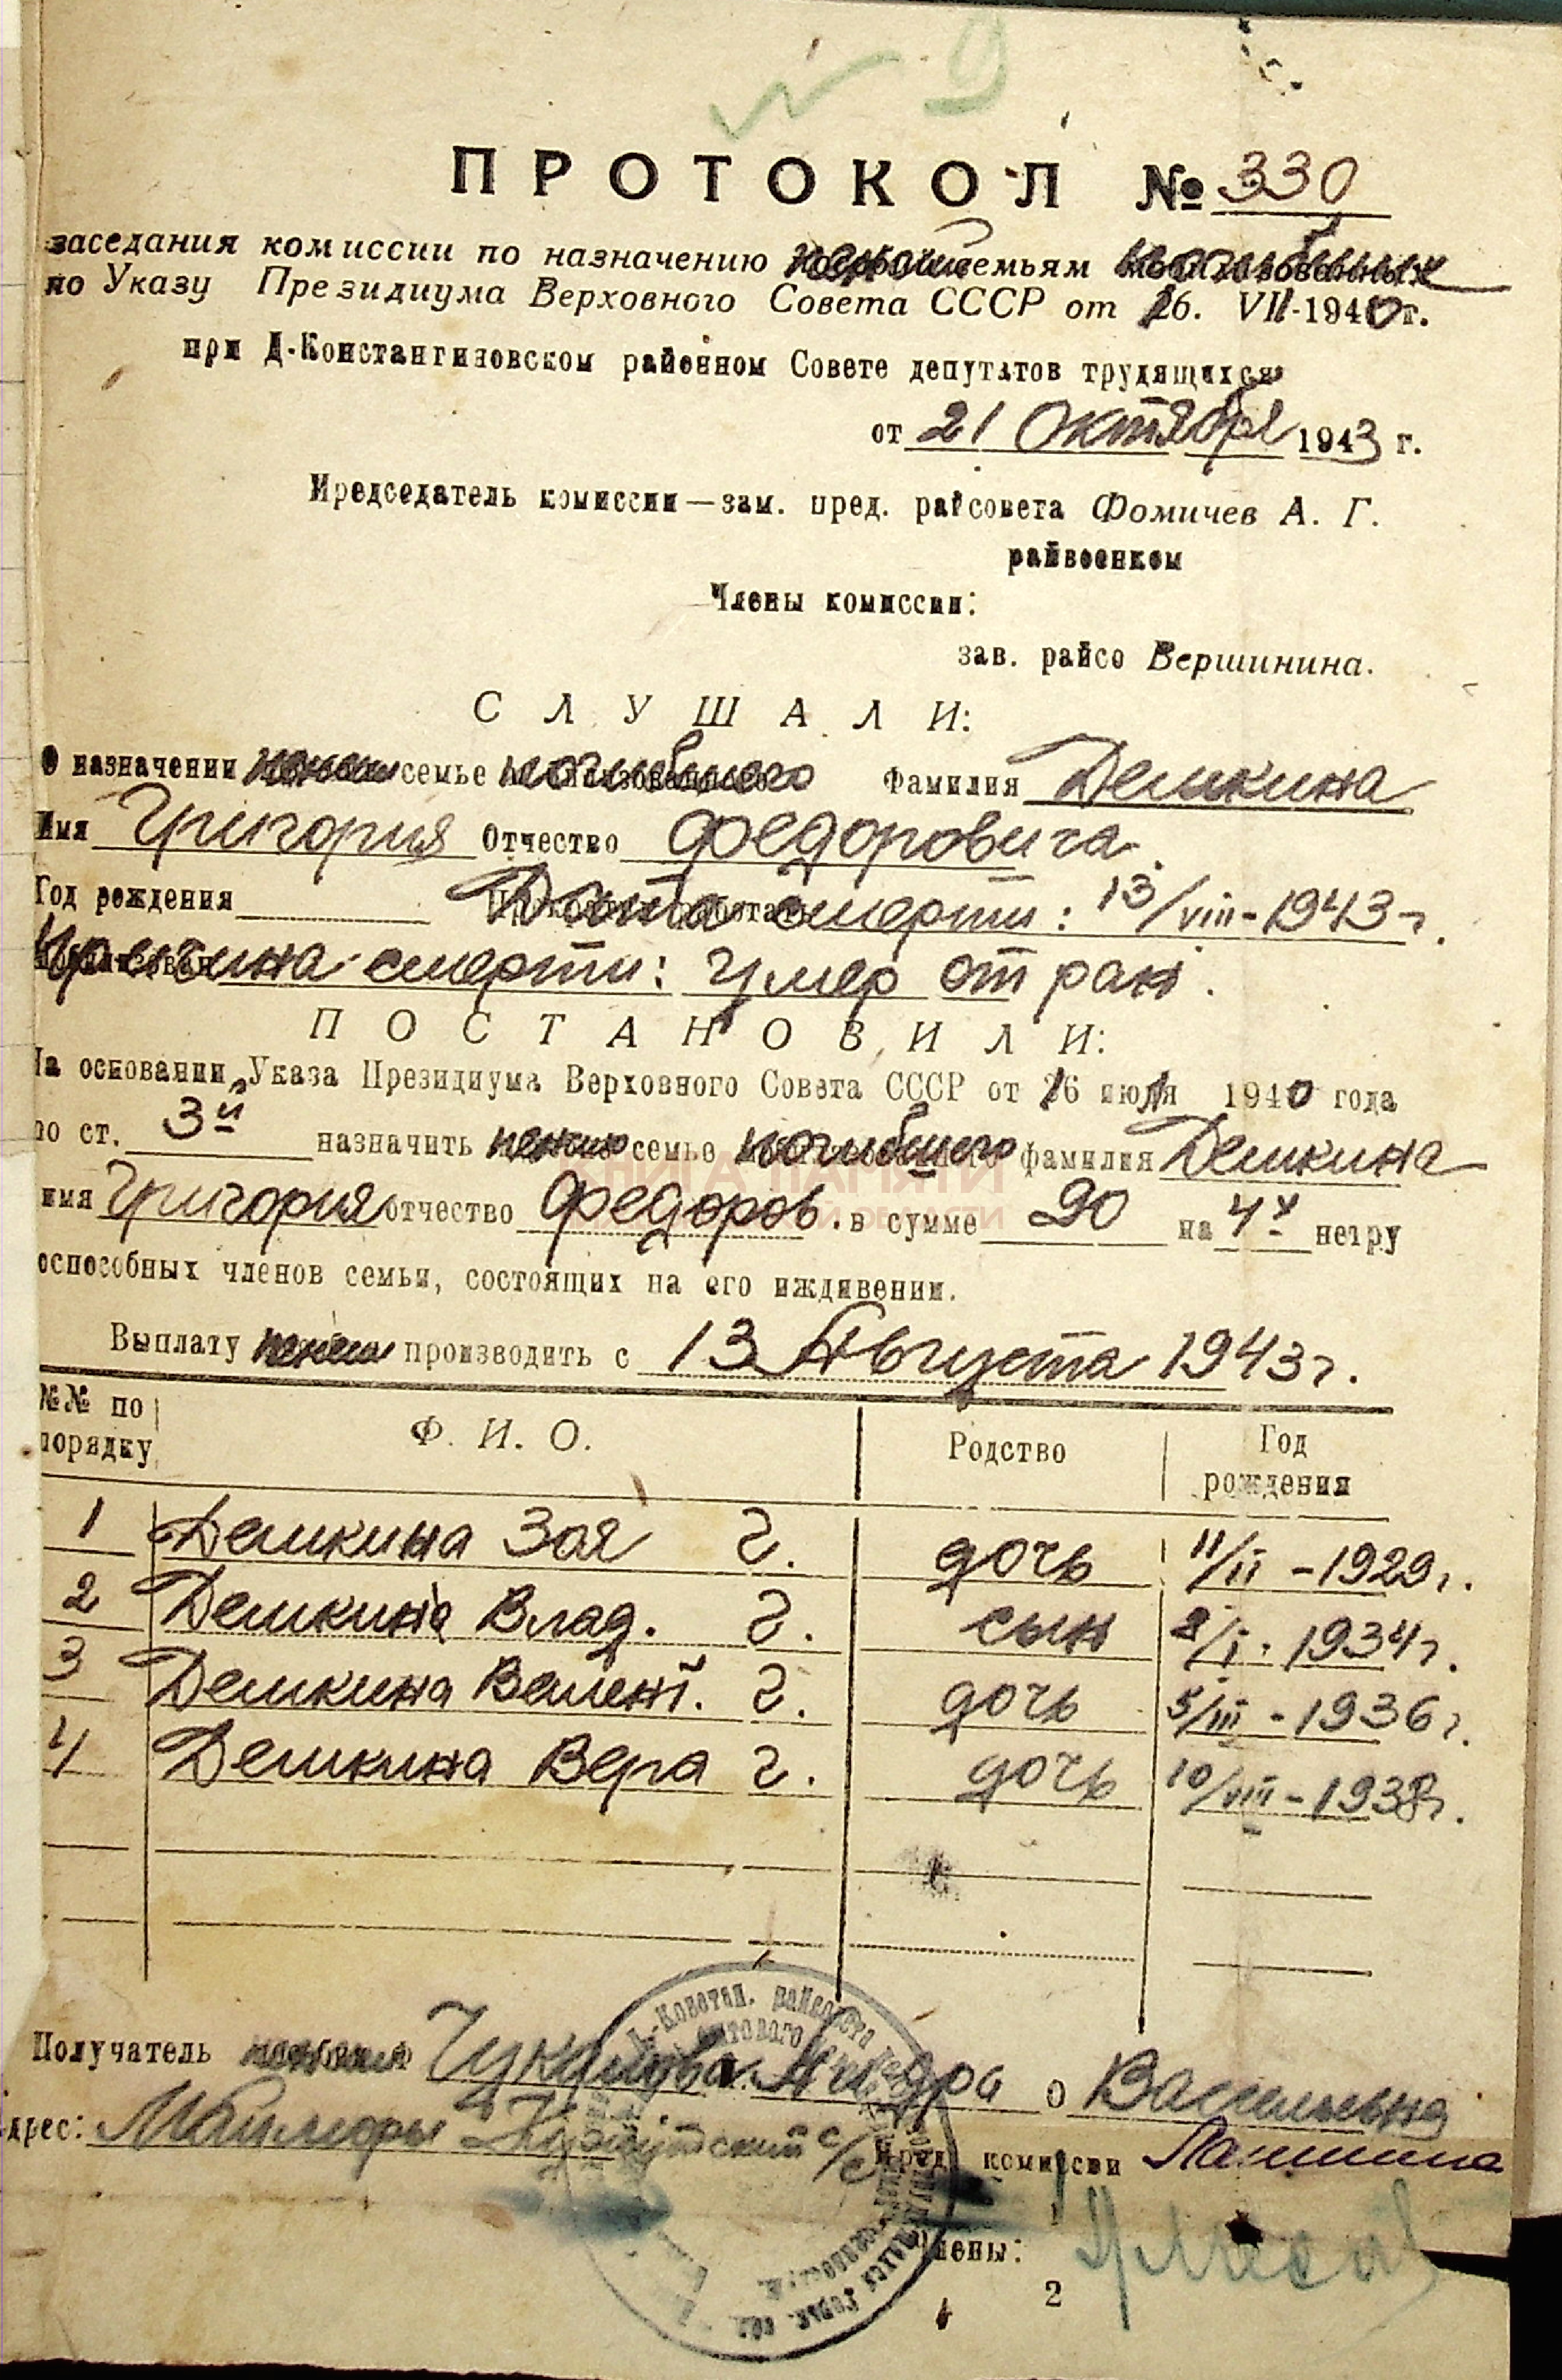 № 9
ПРОТОКОЛ № 330
заседания комиссии по назначению пенсии семьям погибших
по Указу Президиума Верховного Совета СССР от 16. VII-1940 г.
при Д-Константиновском районном Совете депутатов трудящихся
от 21 Октября 1943 г.
Председатель комиссии — зам. пред. райсовета Фомичев А. Г.
райвоенком
Члены комиссии:
зав. райсо Вершинина.
СЛУШАЛИ:
О назначении пенсии семье погибшего Фамилия Демкина
Имя Григория Отчество Федоровича.
Год рождения Дата смерти: 13/VIII-1943 г.
Причина смерти: умер от ран.
ПОСТАНОВИЛИ:
На основании Указа Президиума Верховного Совета СССР от 16 июля 1940 года
по ст. 3й назначить пенсию семье погибшего фамилия Демкина
имя Григория отчество Федоров. в сумме 90 на 4х нетру
оспособных членов семьи, состоящих на его иждивении.
Выплату пенсии производить с 13 Августа 1943 г.
№№ по порядку Ф. И. О. Родство Год рождения
1 Демкина Зоя Г. дочь 11/II-1929 г.
2 Демкина Влад. Г. сын 8/I. 1934 г.
3 Демкина Валент. Г. дочь 5/III-1936 г.
4 Демкина Вера Г. дочь 10/VIII-1938 г.
Получатель пенсии Васильевна
Адрес: с/с Пред. комиссии
Члены:
2
КНИГА ПАМЯТИ